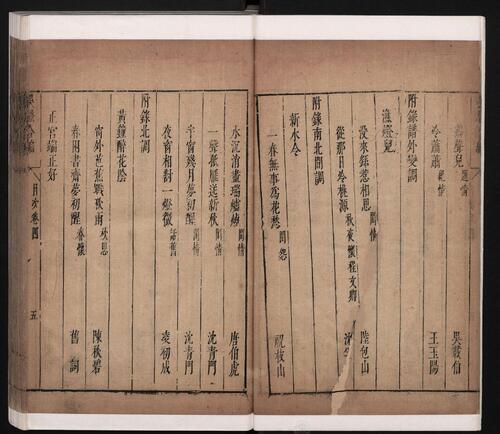 兒 題情
吳載伯
冷蕭蕭 題情
王玉陽
附錄譜外變調
漁燈兒
沒來繇惹相思 閨情
陸包山
從那日 桃源 秋夜懷程文卿
沈
附錄南北閏調
新水令
一春無事為花愁 閨怨
祝枝山
水沉消畫瑞爐煙 閨情
唐伯虎
一聲孤雁送新秋 閨情
沈青門
半窗殘月夢初醒 閨情
沈青門
夜窗相對一燈微 話舊
凌初成
附錄北調
黃鐘醉花陰
窗外芭蕉戰秋雨 秋思
陳秋碧
春閑書齋夢初醒 春懷
舊詞
正宮端正好
目次卷四
五